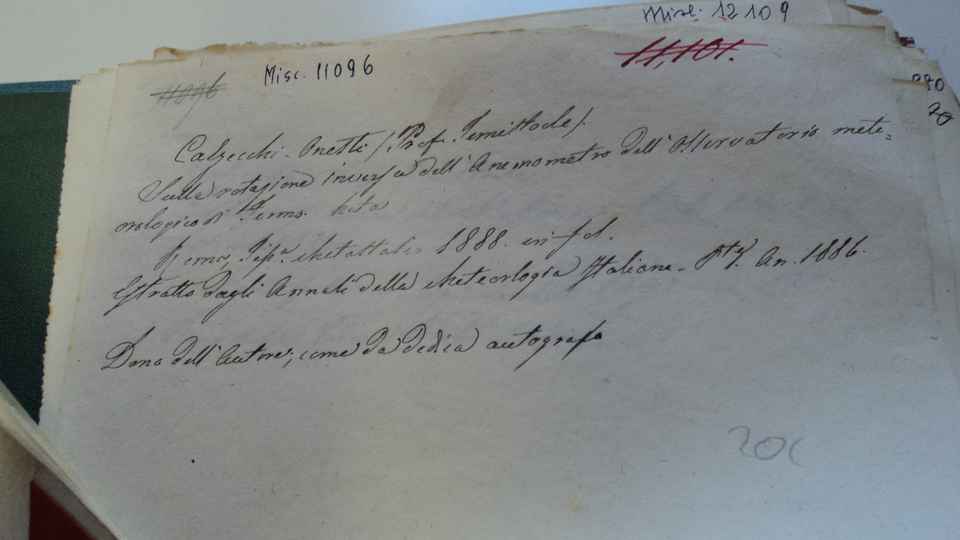 Misc. 12109
11096
Misc. 11096
11,101.
80
20
Calzecchi-Onesti /Prof. Temistocle/.
Sulla rotazione inversa dell'Anemometro dell'Osservatorio mete=
orologico di Fermo. Nota
Roma, Tip.a Metastasio 1888. in fol.
Estratto dagli Annali della Meteorologia Italiana. An. 1886.
Dono dell'Autore, come da dedica autografa
20